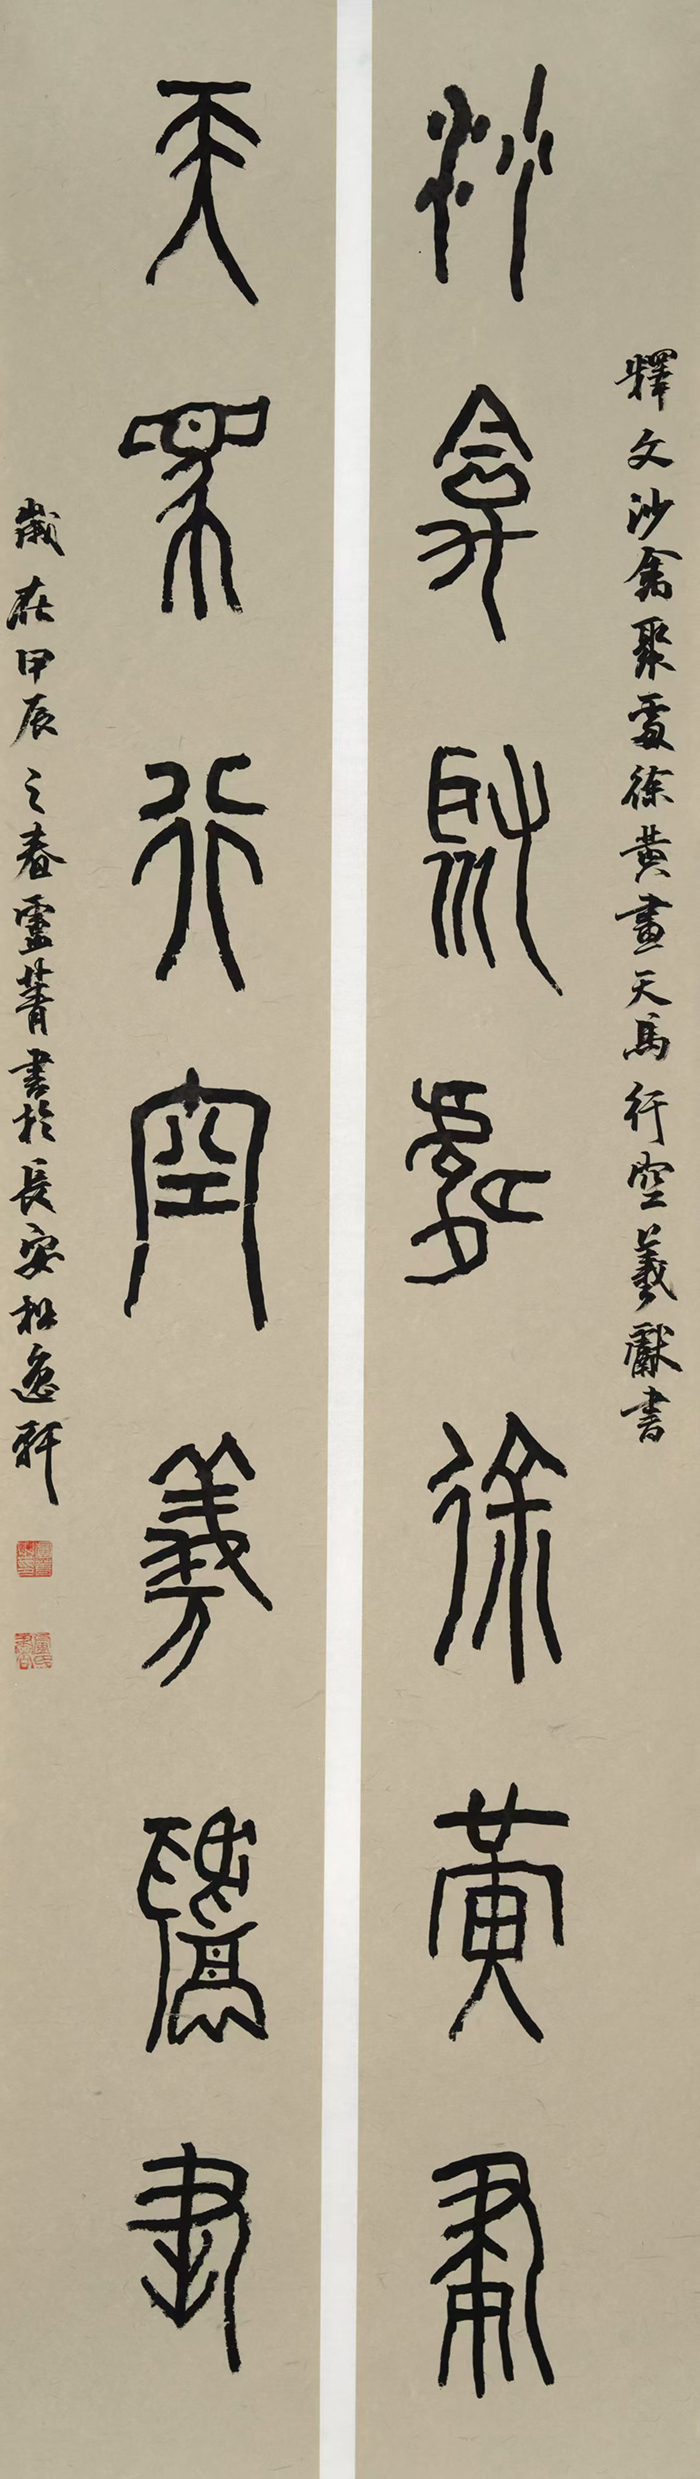 釋文沙禽聚處徐黃畫天馬行空羲獻書
沙禽聚處徐黃畫
天馬行空羲獻書
歲在甲辰之春盧菁書於長安松逸軒